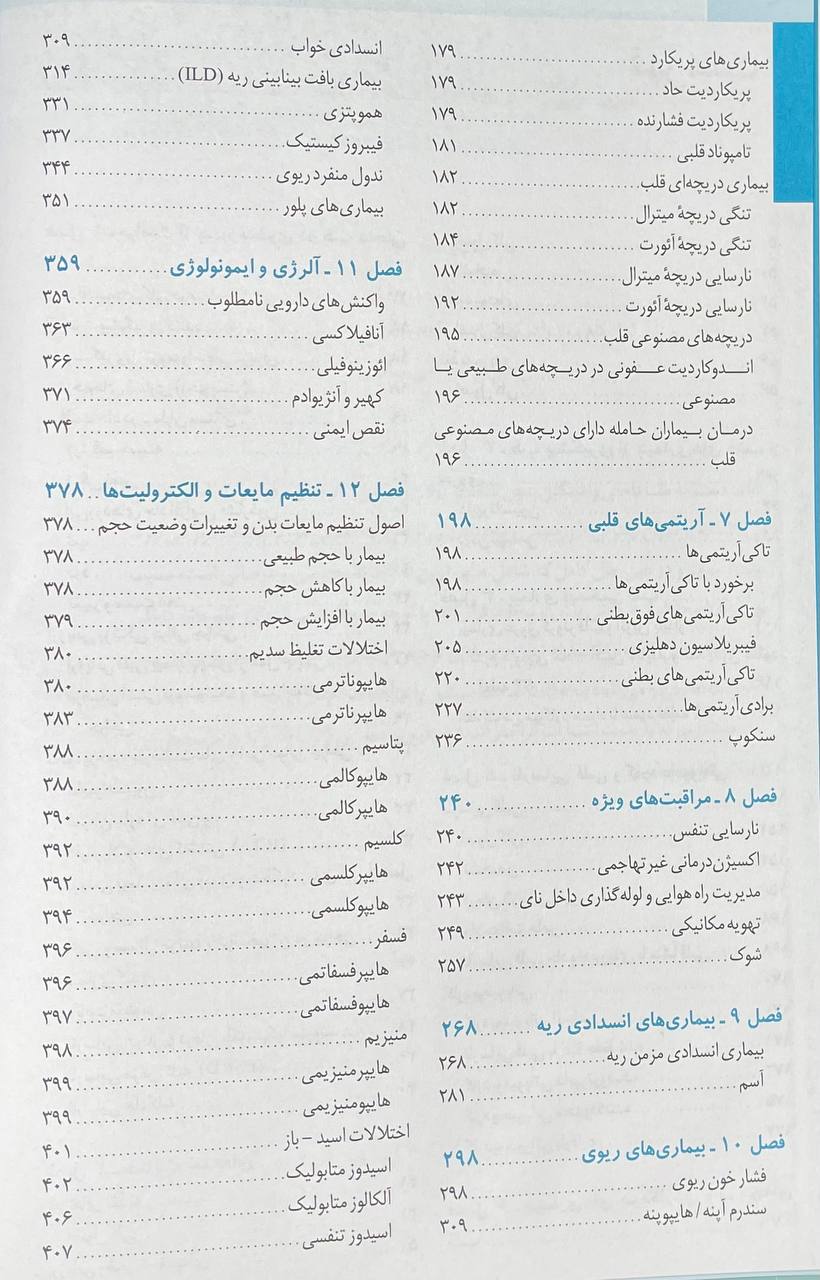 بیماری‌های پریکارد ........ ۱۷۹
پریکاردیت حاد ........ ۱۷۹
پریکاردیت فشارنده ........ ۱۷۹
تامپوناد قلبی ........ ۱۸۱
بیماری دریچه‌ای قلب ........ ۱۸۲
تنگی دریچهٔ میترال ........ ۱۸۲
تنگی دریچهٔ آئورت ........ ۱۸۴
نارسایی دریچهٔ میترال ........ ۱۸۷
نارسایی دریچهٔ آئورت ........ ۱۹۲
دریچه‌های مصنوعی قلب ........ ۱۹۵
اندوکاردیت عفونی در دریچه‌های طبیعی یا
مصنوعی ........ ۱۹۶
درمان بیماران حامله دارای دریچه‌های مصنوعی
قلب ........ ۱۹۶
فصل ۷ ـ آریتمی‌های قلبی ........ ۱۹۸
تاکی‌آریتمی‌ها ........ ۱۹۸
برخورد با تاکی‌آریتمی‌ها ........ ۱۹۸
تاکی‌آریتمی‌های فوق‌بطنی ........ ۲۰۱
فیبریلاسیون دهلیزی ........ ۲۰۵
تاکی‌آریتمی‌های بطنی ........ ۲۲۰
برادی‌آریتمی‌ها ........ ۲۲۷
سنکوپ ........ ۲۳۶
فصل ۸ ـ مراقبت‌های ویژه ........ ۲۴۰
نارسایی تنفس ........ ۲۴۰
اکسیژن‌درمانی غیرتهاجمی ........ ۲۴۲
مدیریت راه هوایی و لوله‌گذاری داخل نای ........ ۲۴۳
تهویه مکانیکی ........ ۲۴۹
شوک ........ ۲۵۷
فصل ۹ ـ بیماری‌های انسدادی ریه ........ ۲۶۸
بیماری انسدادی مزمن ریه ........ ۲۶۸
آسم ........ ۲۸۱
فصل ۱۰ ـ بیماری‌های ریوی ........ ۲۹۸
فشار خون ریوی ........ ۲۹۸
سندرم آپنه/هایپوپنه ........ ۳۰۹
انسدادی خواب ........ ۳۰۹
بیماری بافت بینابینی ریه (ILD) ........ ۳۱۴
هموپتزی ........ ۳۳۱
فیبروز کیستیک ........ ۳۳۷
ندول منفرد ریوی ........ ۳۴۴
بیماری‌های پلور ........ ۳۵۱
فصل ۱۱ ـ آلرژی و ایمونولوژی ........ ۳۵۹
واکنش‌های دارویی نامطلوب ........ ۳۵۹
آنافیلاکسی ........ ۳۶۳
ائوزینوفیلی ........ ۳۶۶
کهیر و آنژیوادم ........ ۳۷۱
نقص ایمنی ........ ۳۷۴
فصل ۱۲ ـ تنظیم مایعات و الکترولیت‌ها .. ۳۷۸
اصول تنظیم مایعات بدن و تغییرات وضعیت حجم ... ۳۷۸
بیمار با حجم طبیعی ........ ۳۷۸
بیمار با کاهش حجم ........ ۳۷۸
بیمار با افزایش حجم ........ ۳۷۹
اختلالات تغلیظ سدیم ........ ۳۸۰
هایپوناترمی ........ ۳۸۰
هایپرناترمی ........ ۳۸۳
پتاسیم ........ ۳۸۸
هایپوکالمی ........ ۳۸۸
هایپرکالمی ........ ۳۹۰
کلسیم ........ ۳۹۲
هایپرکلسمی ........ ۳۹۲
هایپوکلسمی ........ ۳۹۴
فسفر ........ ۳۹۶
هایپرفسفاتمی ........ ۳۹۶
هایپوفسفاتمی ........ ۳۹۷
منیزیم ........ ۳۹۸
هایپرمنیزیمی ........ ۳۹۹
هایپومنیزیمی ........ ۳۹۹
اختلالات اسید – باز ........ ۴۰۱
اسیدوز متابولیک ........ ۴۰۲
آلکالوز متابولیک ........ ۴۰۶
اسیدوز تنفسی ........ ۴۰۷